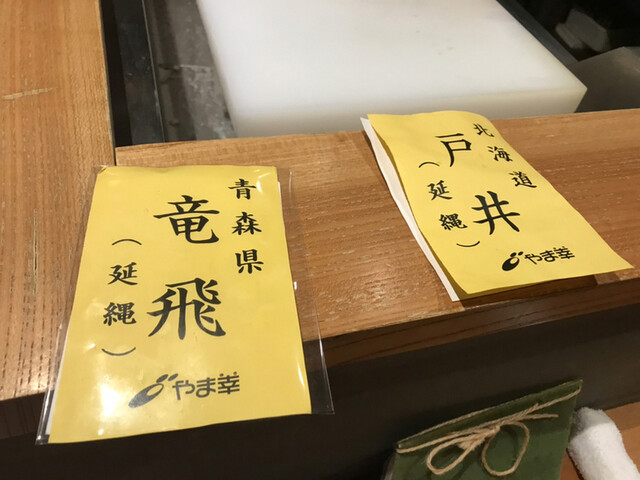 青森県
竜飛
（延縄）
やま幸
北海道
戸井
（延縄）
やま幸